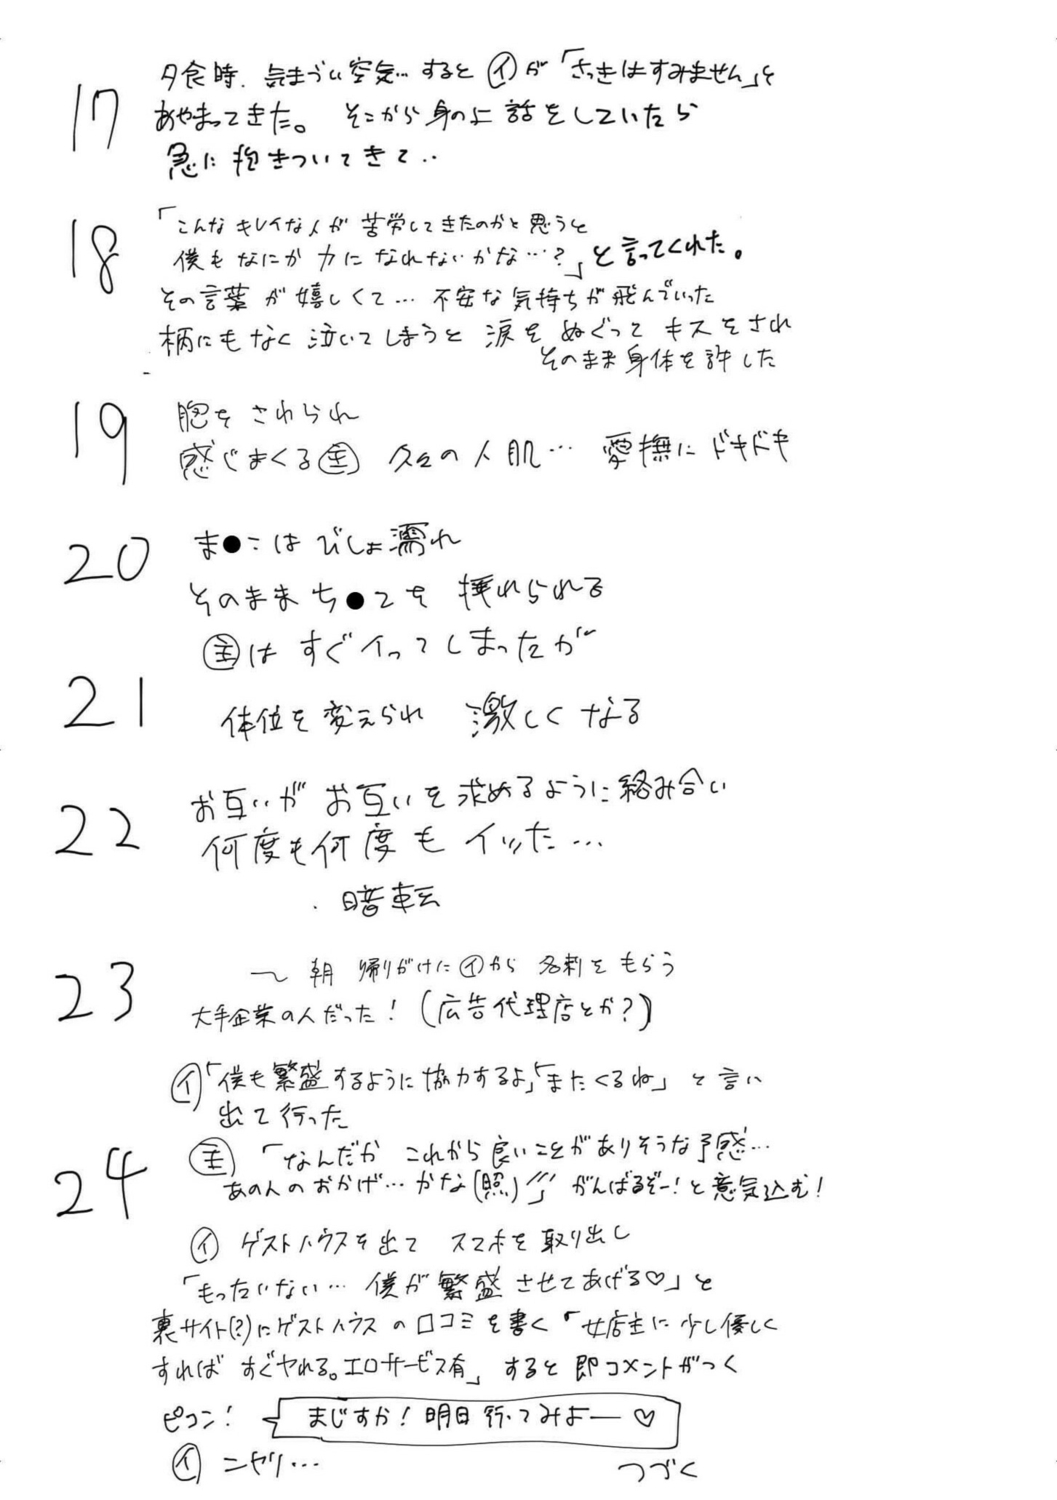 17
夕食時、気まづい空気… すると㋑が「さっきはすみません」と
あやまってきた。 そこから身の上話をしていたら
急に抱きついてきて‥
18
「こんなキレイな人が苦労してきたのかと思うと
僕もなにか力になれないかな…?」と言ってくれた。
その言葉が嬉しくて… 不安な気持ちが飛んでいった
柄にもなく泣いてしまうと涙をぬぐってキスをされ
そのまま身体を許した
19
胸をさわられ
感じまくる㊟ 久々の人肌… 愛撫にドキドキ
20
ま●こはびしょ濡れ
そのままち●こを挿れられる
(主)はすぐイってしまったが
21
体位を変えられ 激しくなる
22
お互いがお互いを求めるように絡み合い
何度も何度もイッた…
暗転
23
〜朝 帰りがけに㋑から名刺をもらう
大手企業の人だった!(広告代理店とか?)
㋑「僕も繁盛するように協力するよ」「またくるね」と言い
出て行った
24
(主)「なんだかこれから良いことがありそうな予感…
あの人のおかげ…かな(照)」 がんばるぞー!と意気込む!
㋑ ゲストハウスを出て スマホを取り出し
「もったいない… 僕が繁盛させてあげる♡」と
裏サイト(?)にゲストハウスの口コミを書く「女店主に少し優しく
すればすぐヤれる。エロサービス有」すると即コメントがつく
ピコン! まじすか!明日行ってみよー♡
㋑ ニヤリ…
つづく